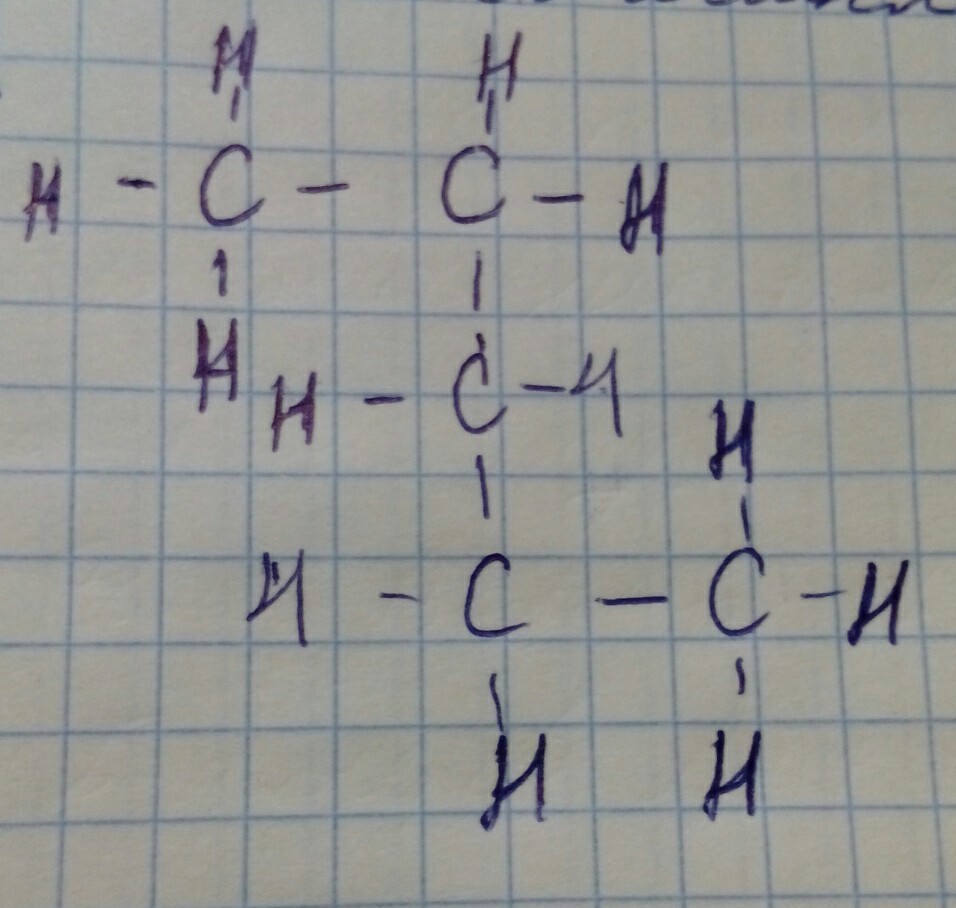 H H
H - C - C - H
H
H - C - H
H
H - C - C - H
H H